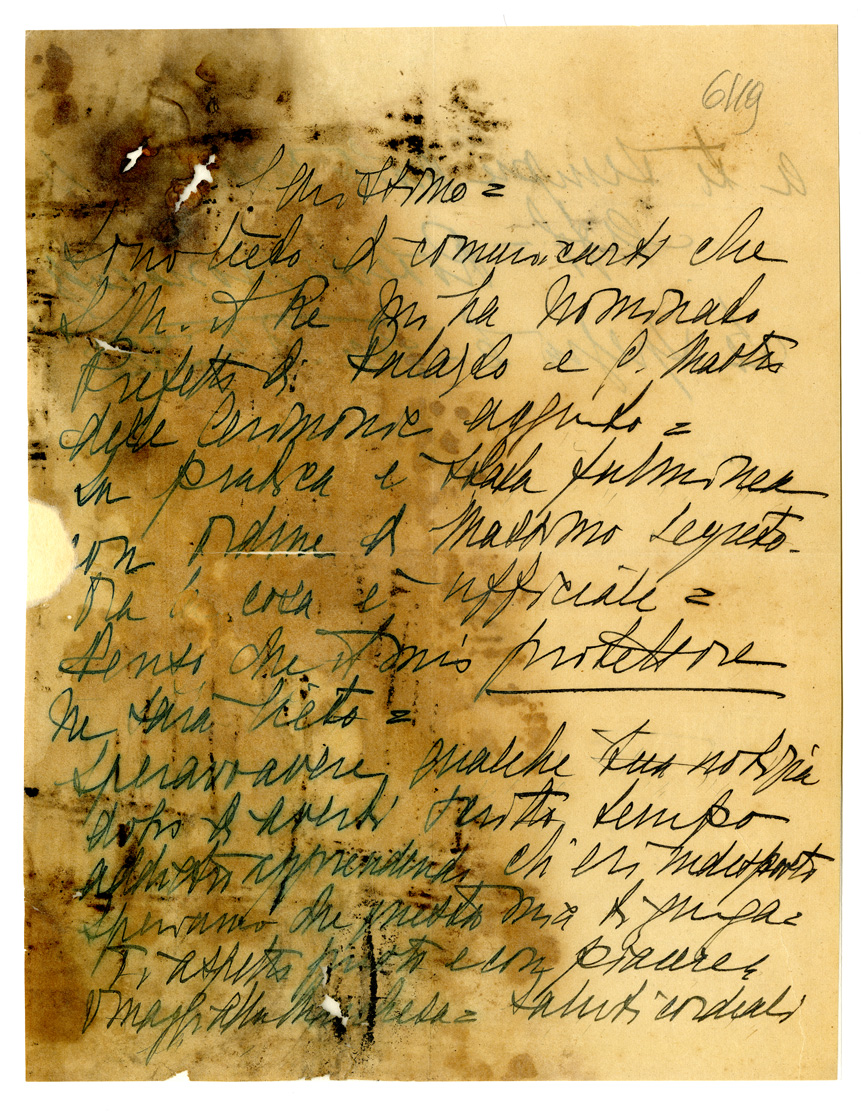 6119
Carissimo =
Sono lieto di comunicarti che
S. M. il Re mi ha nominato
Prefetto di Palazzo e G. Mastro
delle Cerimonie aggiunto =
La pratica è stata fulminea
con ordine di Massimo Segreto.
Ora la cosa è ufficiale =
Penso che il mio protettore
ne sarà lieto =
Speravo avere qualche tua notizia
dopo di averti scritto tempo
addietro apprendendo ch'eri indisposto
speriamo che questa mia ti giunga =
Ti aspetto presto e con piacere
Omaggi alla Marchesa = Saluti cordiali